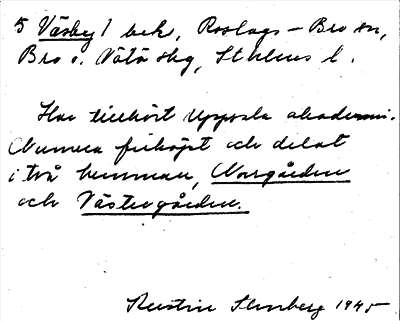 5 Väsby 1 bek, Roslags-Bro sn,
Bro o. Vätö skg, Sthlms l.
Har tillhört Uppsala akademi.
Numera friköpt och delat
i två hemman, Norrgården
och Västergården.
Kerstin Stenberg 1945